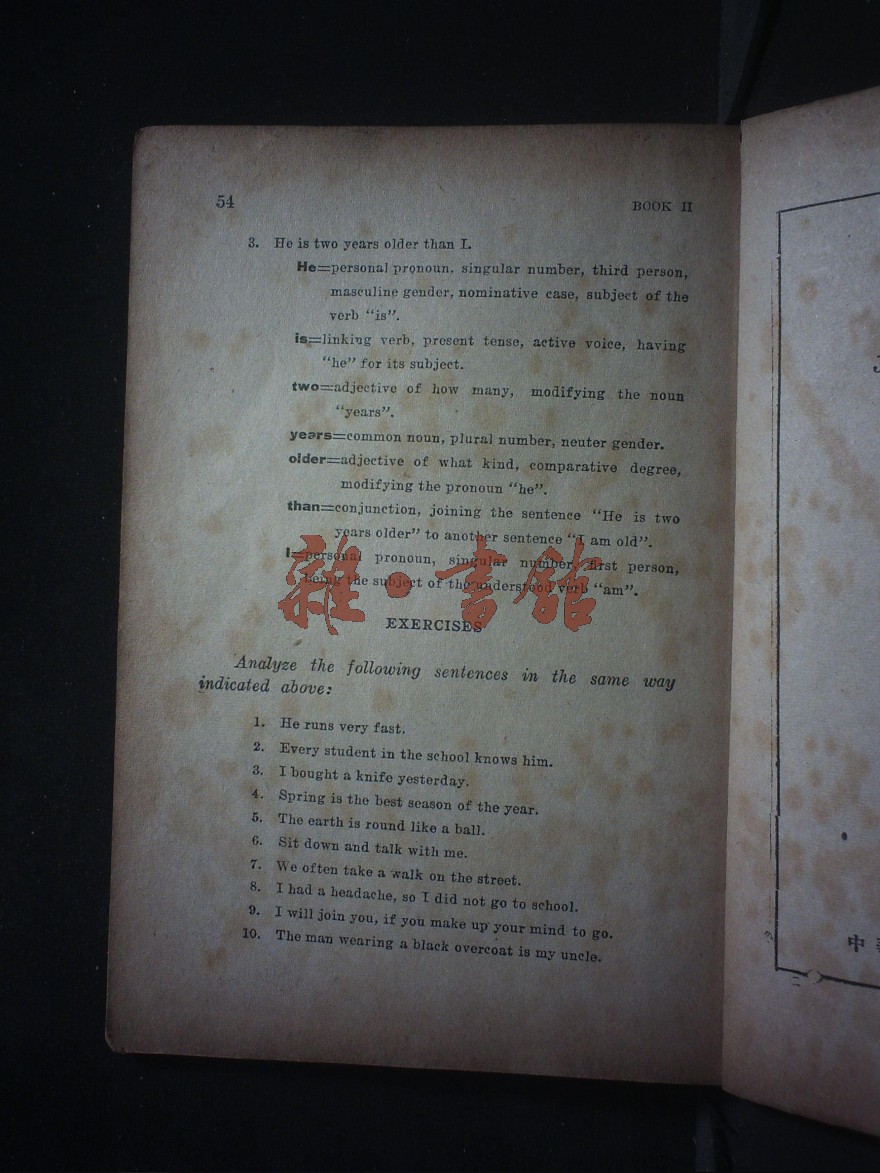 54
BOOK II
3. He is two years older than I.
He=personal pronoun, singular number, third person,
masculine gender, nominative case, subject of the
verb “is”.
is=linking verb, present tense, active voice, having
“he” for its subject.
two=adjective of how many, modifying the noun
“years”.
years=common noun, plural number, neuter gender.
older=adjective of what kind, comparative degree,
modifying the pronoun “he”.
than=conjunction, joining the sentence “He is two
years older” to another sentence “I am old”.
I=personal pronoun, singular number, first person,
being the subject of the understood verb “am”.
雜·書館
EXERCISES
Analyze the following sentences in the same way
indicated above:
1. He runs very fast.
2. Every student in the school knows him.
3. I bought a knife yesterday.
4. Spring is the best season of the year.
5. The earth is round like a ball.
6. Sit down and talk with me.
7. We often take a walk on the street.
8. I had a headache, so I did not go to school.
9. I will join you, if you make up your mind to go.
10. The man wearing a black overcoat is my uncle.
中